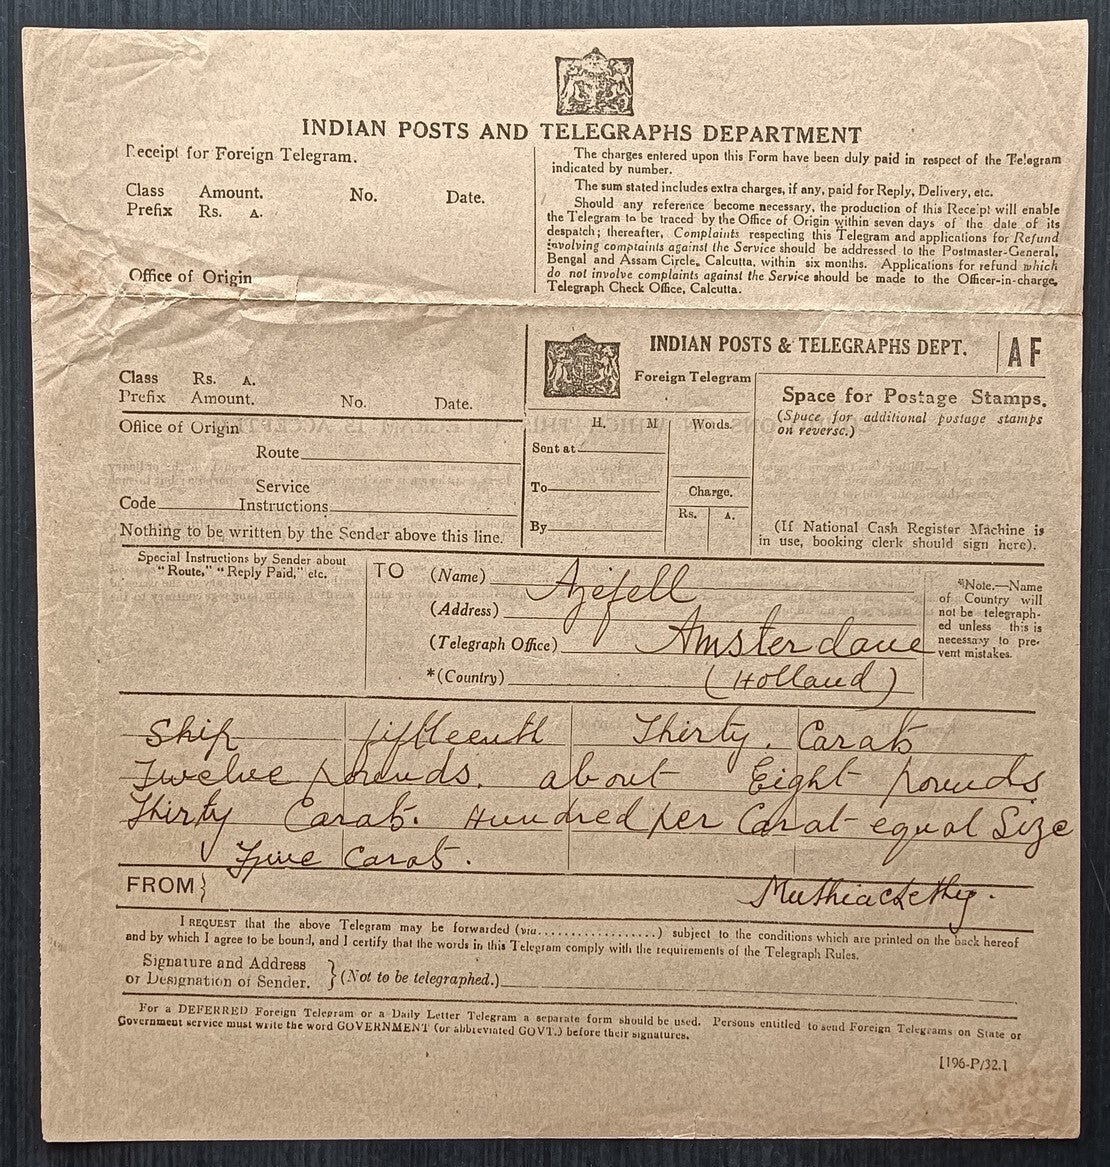 INDIAN POSTS AND TELEGRAPHS DEPARTMENT
Receipt for Foreign Telegram.
Class Amount. No. Date.
Prefix Rs. A.
Office of Origin
The charges entered upon this Form have been duly paid in respect of the Telegram
indicated by number.
The sum stated includes extra charges, if any, paid for Reply, Delivery, etc.
Should any reference become necessary, the production of this Receipt will enable
the Telegram to be traced by the Office of Origin within seven days of the date of its
despatch; thereafter, Complaints respecting this Telegram and applications for Refund
involving complaints against the Service should be addressed to the Postmaster-General,
Bengal and Assam Circle, Calcutta, within six months. Applications for refund which
do not involve complaints against the Service should be made to the Officer-in-charge,
Telegraph Check Office, Calcutta.
INDIAN POSTS & TELEGRAPHS DEPT. AF
Foreign Telegram
Class Rs. A.
Prefix Amount. No. Date.
Office of Origin
Route
Service
Code Instructions
Nothing to be written by the Sender above this line.
H. M Words.
Sent at
To
Charge.
Rs. A.
By
Space for Postage Stamps.
(Space for additional postage stamps
on reverse.)
(If National Cash Register Machine is
in use, booking clerk should sign here).
Special Instructions by Sender about
"Route," "Reply Paid," etc.
TO (Name) Azefell
(Address)
(Telegraph Office) Amsterdam
*(Country) (Holland)
*Note.—Name
of Country will
not be telegraph-
ed unless this is
necessary to pre-
vent mistakes.
Ship fifteenth Thirty. Carats
Twelve pounds. about Eight pounds
Thirty Carats. Hundred per Carat equal Size
Five Carats.
FROM}
I REQUEST that the above Telegram may be forwarded (via..................) subject to the conditions which are printed on the back hereof
and by which I agree to be bound, and I certify that the words in this Telegram comply with the requirements of the Telegraph Rules.
Signature and Address
or Designation of Sender. } (Not to be telegraphed.)
For a DEFERRED Foreign Telegram or a Daily Letter Telegram a separate form should be used. Persons entitled to send Foreign Telegrams on State or
Government service must write the word GOVERNMENT (or abbreviated GOVT.) before their signatures.
[196-P/32.]